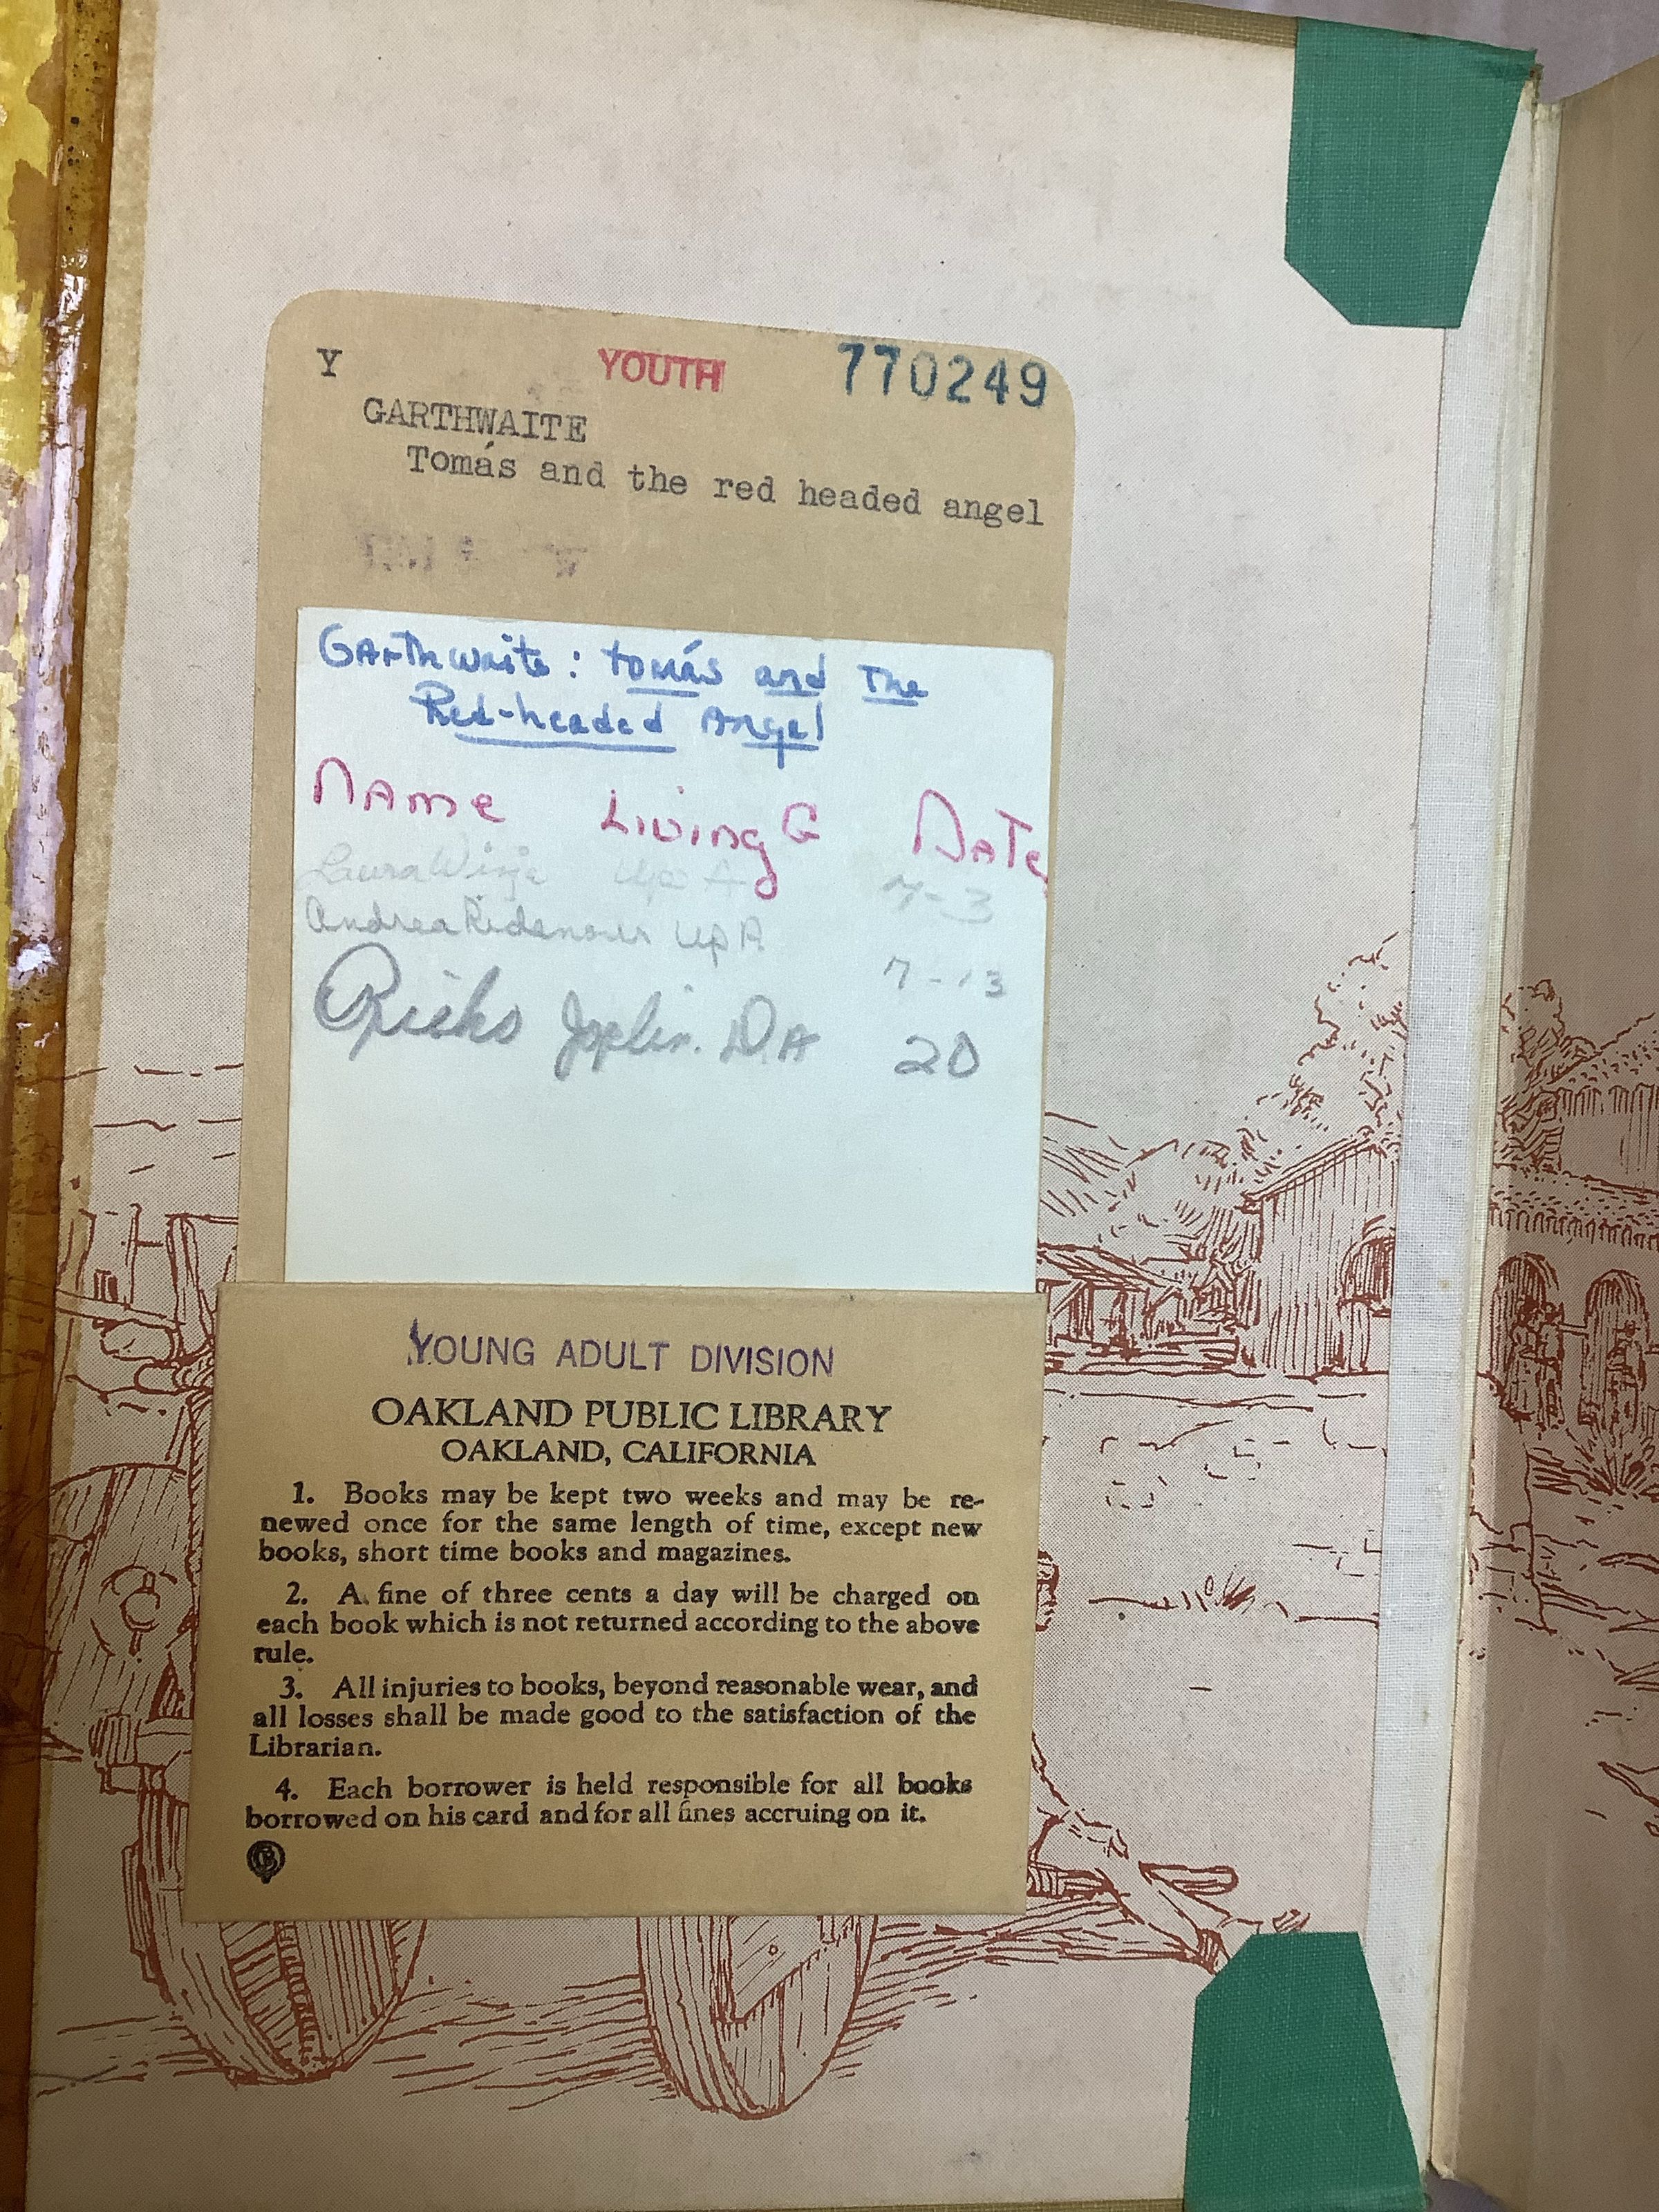 Y YOUTH 770249
GARTHWAITE
Tomás and the red headed angel
Garthwaite: Tomás and The
Red-headed Angel
Name Living G Date
Laura 7-3
Andrea Ridenour Up A
7-13
Joplin. D.A 20
YOUNG ADULT DIVISION
OAKLAND PUBLIC LIBRARY
OAKLAND, CALIFORNIA
1. Books may be kept two weeks and may be re-
newed once for the same length of time, except new
books, short time books and magazines.
2. A fine of three cents a day will be charged on
each book which is not returned according to the above
rule.
3. All injuries to books, beyond reasonable wear, and
all losses shall be made good to the satisfaction of the
Librarian.
4. Each borrower is held responsible for all books
borrowed on his card and for all fines accruing on it.